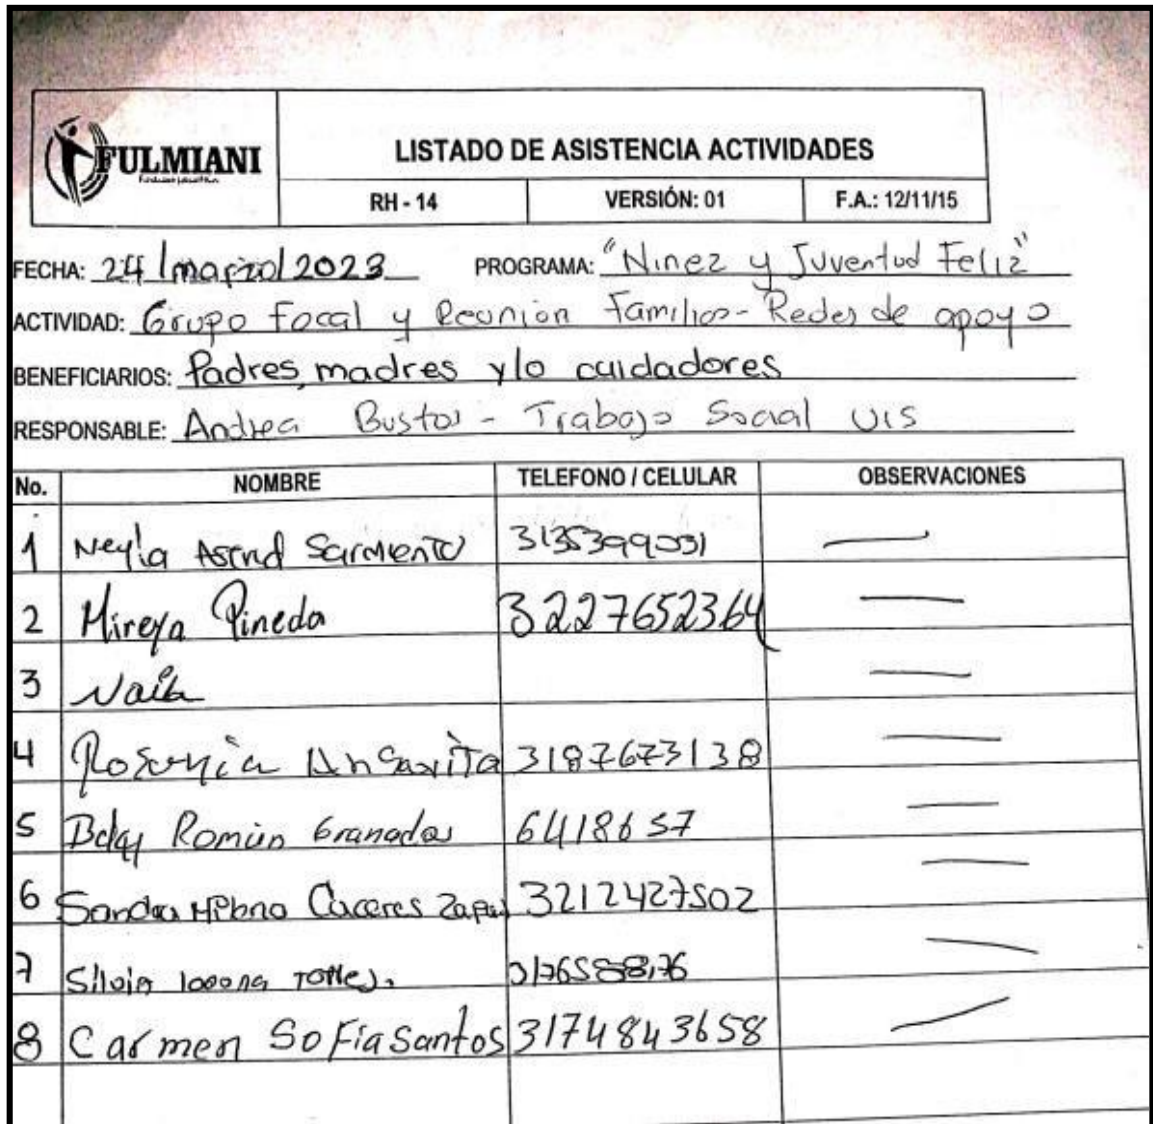 FULMIANI
LISTADO DE ASISTENCIA ACTIVIDADES
RH - 14 VERSIÓN: 01 F.A.: 12/11/15
FECHA: 24 / marzo / 2023 PROGRAMA: "Ninez y Juventud Feliz"
ACTIVIDAD: Grupo Focal y Reunion Familias - Redes de apoyo
BENEFICIARIOS: Padres, madres y/o cuidadores
RESPONSABLE: Andrea Bustos - Trabajo Social UIS
No. NOMBRE TELEFONO / CELULAR OBSERVACIONES
1 Neyla Astrid Sarmiento 3135399031 —
2 Mireya Pineda 3227652364 —
3 —
4 3187673138 —
5 Román Granados 6418657 —
6 Sandra Caceres 3212427502 —
7 Silvia Torres. —
8 Carmen Sofia Santos 3174843658 —